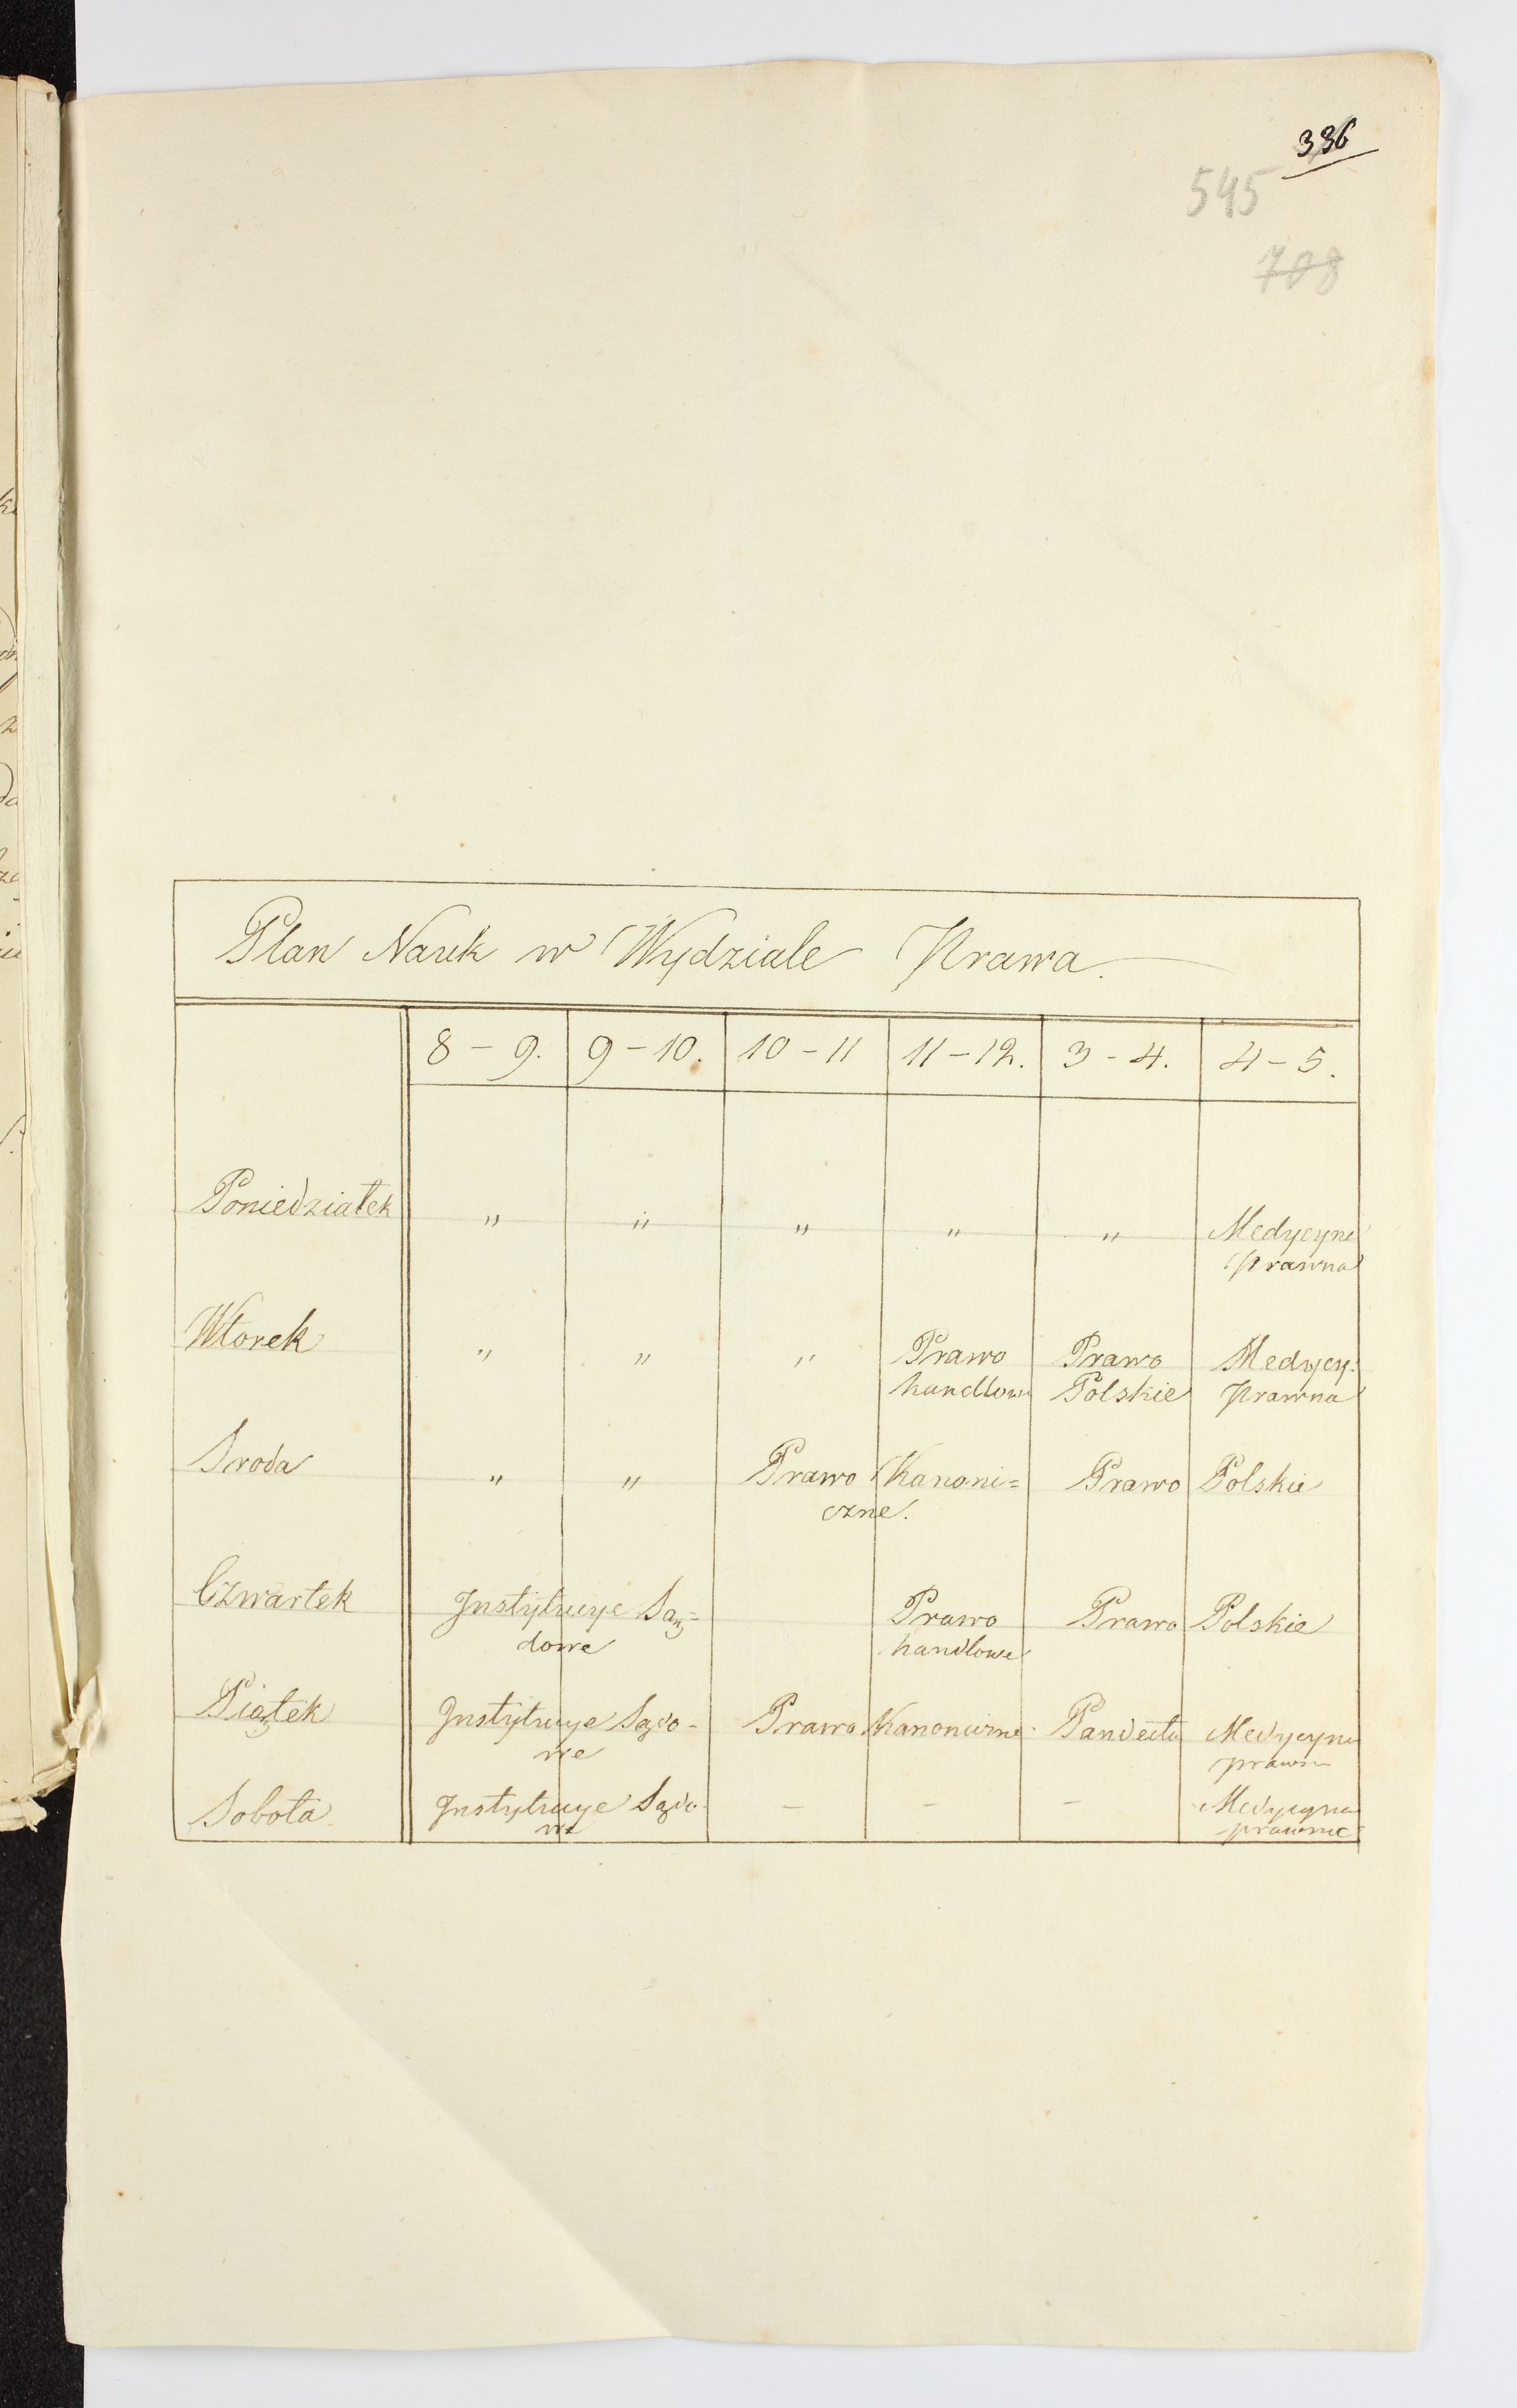 336
545
708
Plan Nauk w Wydziale Prawa.
8 – 9. 9 – 10. 10 – 11 11 – 12. 3 – 4. 4 – 5.
Poniedziałek " " " " " Medycyna
Prawna
Wtorek " " " Prawo Prawo Medycy:
handlowe Polskie Prawna
Sroda " " Prawo Kanoni= Prawo Polskie
czne.
Czwartek Instytucye Są= Prawo Prawo Polskie
dowe handlowe
Piątek Instytucye Sądo- Prawo Kanoniczne Pandecta Medycyna
we prawn
Sobota Instytucye Sądo- – – – Medycyna
we prawna